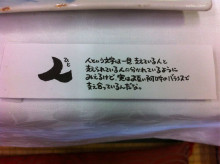 人
ひと
人という文字は一見 支えている人と
支えられている人に分かれているように
みえるけど、実はお互い何時もバランスで
支え合っているんだな。